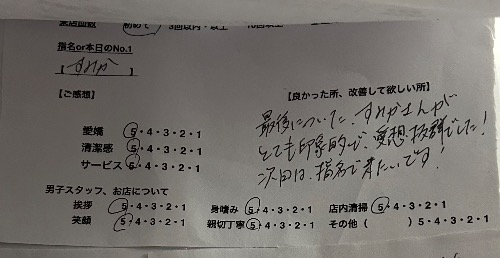 来店回数 初めて・3回以内・以上 10回以上
指名or本日のNo.1
【 すみか 】
【ご感想】
【良かった所、改善して欲しい所】
最後についた、すみかさんが
とても印象的で、愛想抜群でした!
次回は、指名で来たいです!
愛嬌 5・4・3・2・1
清潔感 5・4・3・2・1
サービス 5・4・3・2・1
男子スタッフ、お店について
挨拶 5・4・3・2・1 身嗜み 5・4・3・2・1 店内清掃 5・4・3・2・1
笑顔 5・4・3・2・1 親切丁寧 5・4・3・2・1 その他( )5・4・3・2・1